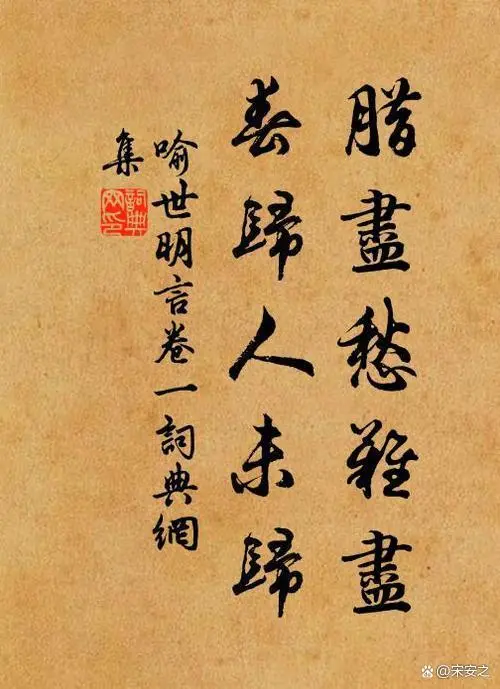 腊盡愁難盡
春歸人未歸
喻世明言卷一詞典網
集
詞典网印
@宋安之